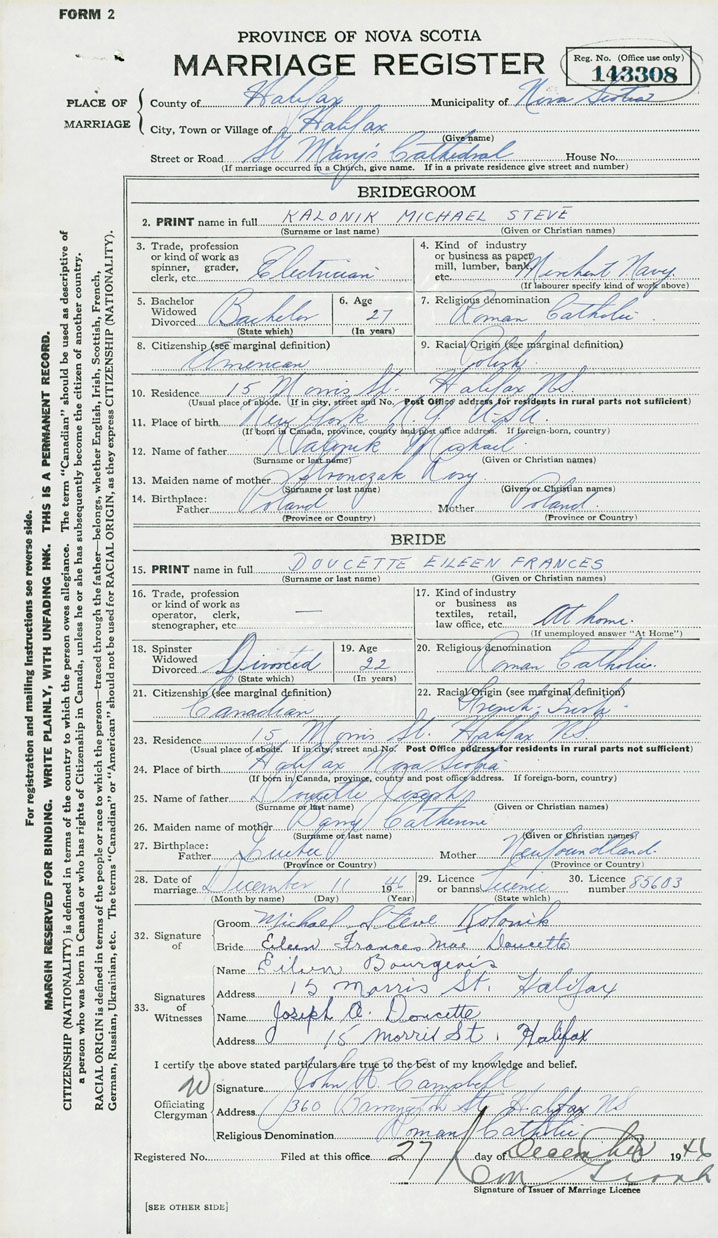 FORM 2
PROVINCE OF NOVA SCOTIA
MARRIAGE REGISTER
Reg. No. (Office use only)
143308
PLACE OF MARRIAGE
County of Halifax Municipality of Nova Scotia
City, Town or Village of Halifax
(Give name)
Street or Road St Mary's Cathedral House No.
(If marriage occurred in a Church, give name. If in a private residence give street and number)
BRIDEGROOM
2. PRINT name in full KALONIK MICHAEL STEVE
(Surname or last name) (Given or Christian names)
3. Trade, profession or kind of work as spinner, grader, clerk, etc. Electrician
4. Kind of industry or business as paper mill, lumber, bank, etc. Merchant Navy
(If labourer specify kind of work above)
5. Bachelor Widowed Divorced Bachelor
(State which)
6. Age 27
(In years)
7. Religious denomination
Roman Catholic
8. Citizenship (see marginal definition)
American
9. Racial Origin (see marginal definition)
Polish
10. Residence 15 Morris St. Halifax N.S.
(Usual place of abode. If in city, street and No. Post Office address for residents in rural parts not sufficient)
11. Place of birth New York N.Y. U.S.A
(If born in Canada, province, county and post office address. If foreign-born, country)
12. Name of father Kalonik Michael
(Surname or last name) (Given or Christian names)
13. Maiden name of mother Rosy
(Surname or last name) (Given or Christian names)
14. Birthplace: Father Poland Mother Poland
(Province or Country) (Province or Country)
BRIDE
15. PRINT name in full DOUCETTE EILEEN FRANCES
(Surname or last name) (Given or Christian names)
16. Trade, profession or kind of work as operator, clerk, stenographer, etc —
17. Kind of industry or business as textiles, retail, law office, etc. At home
(If unemployed answer "At Home")
18. Spinster Widowed Divorced Divorced
(State which)
19. Age 22
(In years)
20. Religious denomination
Roman Catholic
21. Citizenship (see marginal definition)
Canadian
22. Racial Origin (see marginal definition)
French-Irish
23. Residence 15 Morris St. Halifax N.S.
(Usual place of abode. If in city, street and No. Post Office address for residents in rural parts not sufficient)
24. Place of birth Halifax Nova Scotia
(If born in Canada, province, county and post office address. If foreign-born, country)
25. Name of father Doucette Joseph
(Surname or last name) (Given or Christian names)
26. Maiden name of mother Catherine
(Surname or last name) (Given or Christian names)
27. Birthplace: Father Quebec Mother Newfoundland
(Province or Country) (Province or Country)
28. Date of marriage December 11 1946
(Month by name) (Day) (Year)
29. Licence or banns Licence
(State which)
30. Licence number 85603
32. Signature of
Groom Michael Steve Kolonik
Bride Eileen Frances Mae Doucette
33. Signatures of Witnesses
Name Eileen Bourgeois
Address 15 Morris St. Halifax
Name Joseph A. Doucette
Address 15 Morris St. Halifax
I certify the above stated particulars are true to the best of my knowledge and belief.
Officiating Clergyman
Signature John R. Campbell
Address 360 Barrington St. Halifax N.S
Religious Denomination Roman Catholic
Registered No. Filed at this office 27 day of December 1946
Signature of Issuer of Marriage Licence
[SEE OTHER SIDE]
For registration and mailing instructions see reverse side.
MARGIN RESERVED FOR BINDING. WRITE PLAINLY, WITH UNFADING INK. THIS IS A PERMANENT RECORD.
CITIZENSHIP (NATIONALITY) is defined in terms of the country to which the person owes allegiance. The term "Canadian" should be used as descriptive of
a person who was born in Canada or who has rights of Citizenship in Canada, unless he or she has subsequently become the citizen of another country.
RACIAL ORIGIN is defined in terms of the people or race to which the person—traced through the father—belongs, whether English, Irish, Scottish, French,
German, Russian, Ukrainian, etc. The terms "Canadian" or "American" should not be used for RACIAL ORIGIN, as they express CITIZENSHIP (NATIONALITY).